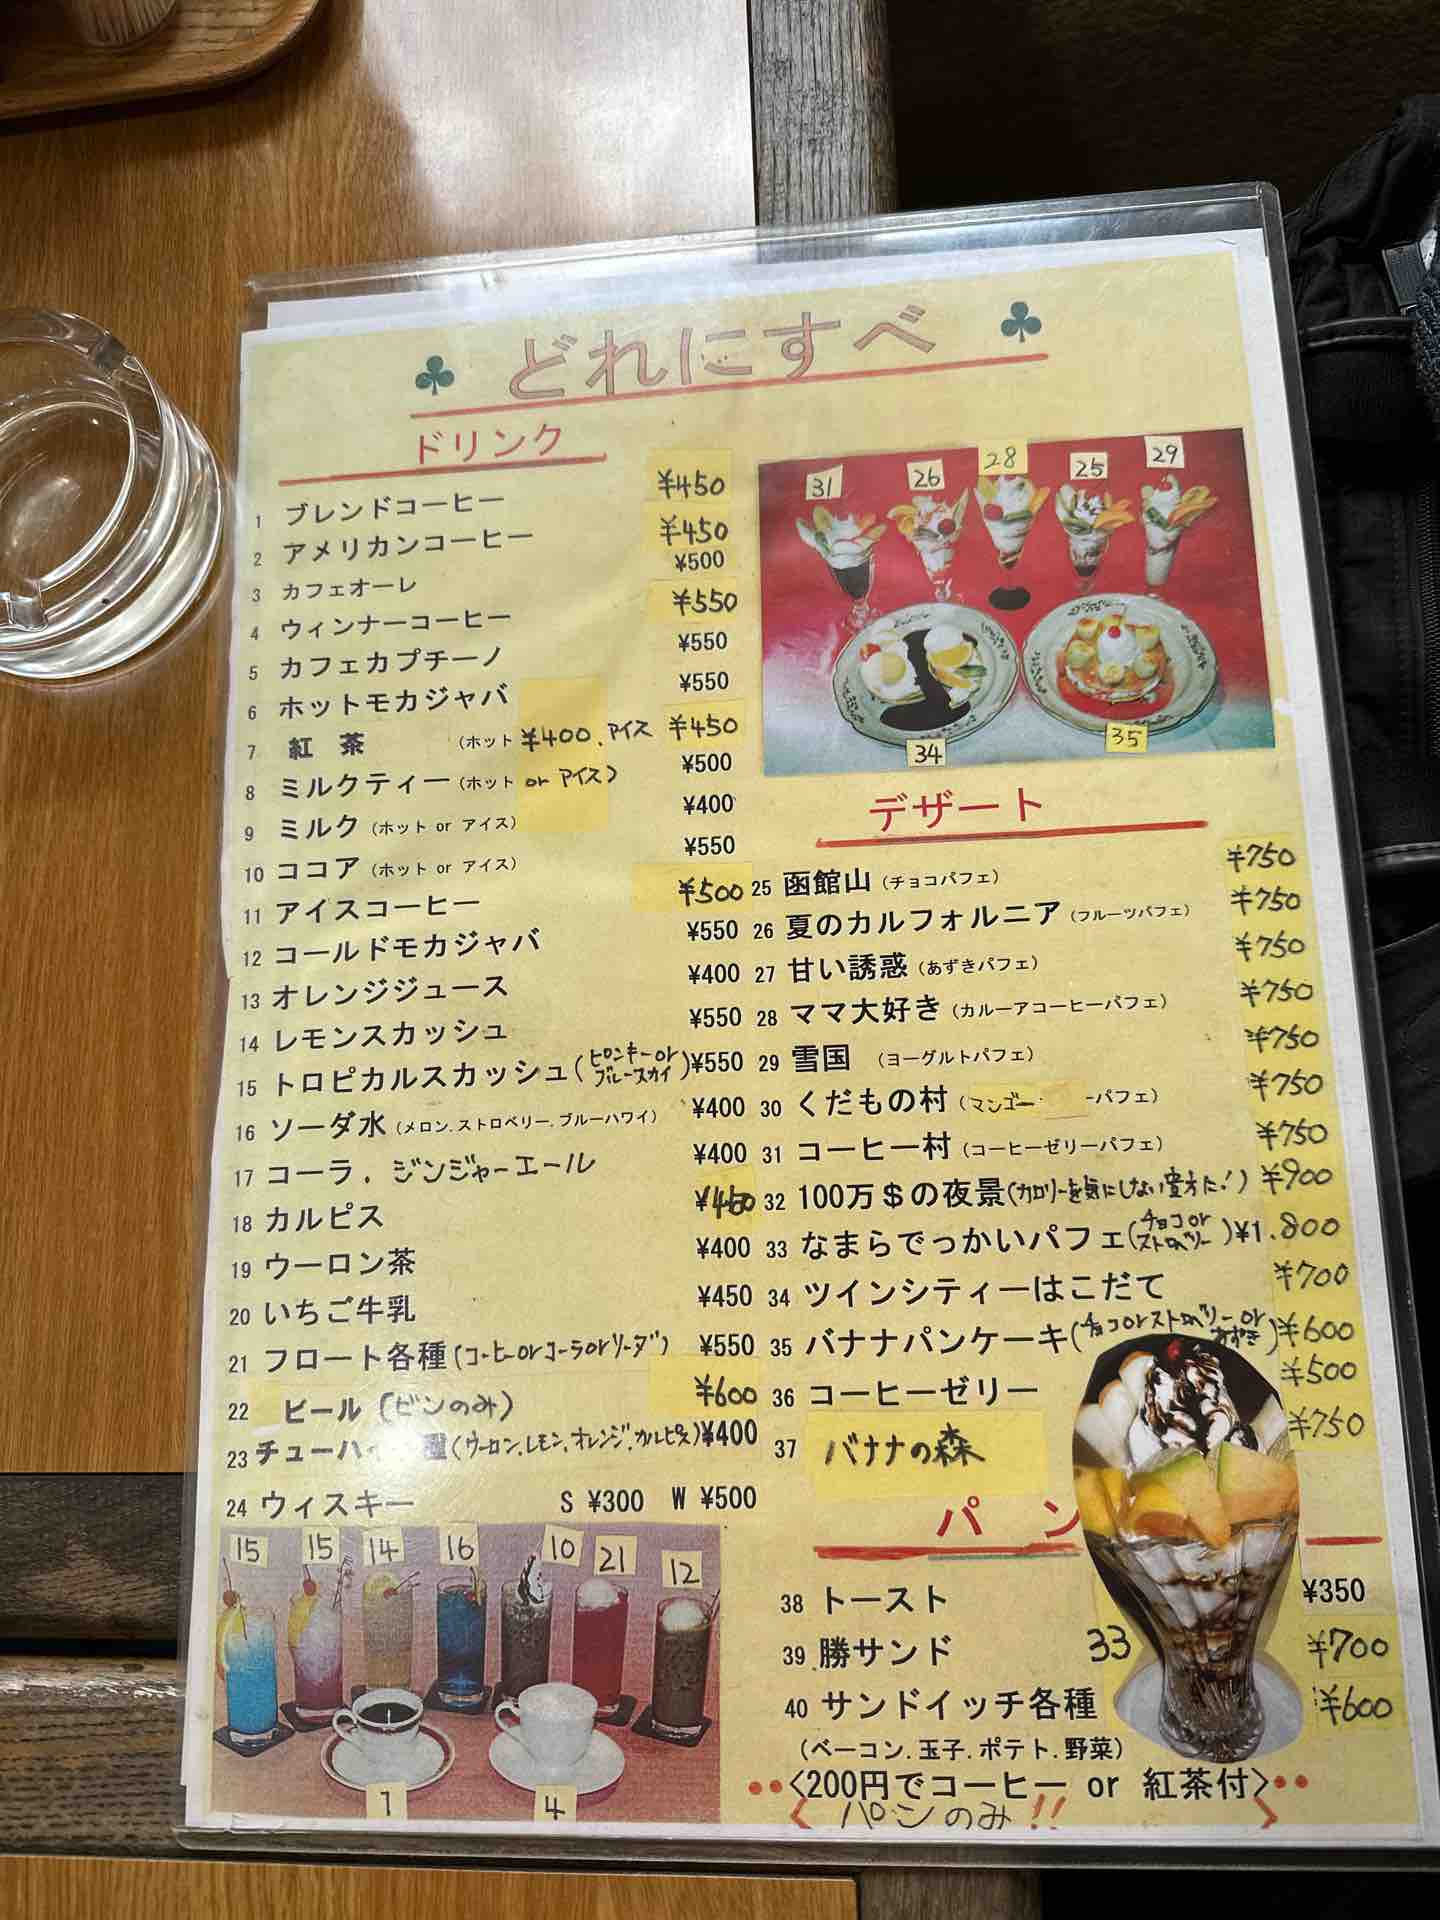 どれにすべ
ドリンク
1 ブレンドコーヒー ¥450
2 アメリカンコーヒー ¥450
3 カフェオーレ ¥500
4 ウィンナーコーヒー ¥550
5 カフェカプチーノ ¥550
6 ホットモカジャバ ¥550
7 紅茶 (ホット ¥400、アイス ¥450
8 ミルクティー (ホット or アイス) ¥500
9 ミルク (ホット or アイス) ¥400
10 ココア (ホット or アイス) ¥550
11 アイスコーヒー ¥500
12 コールドモカジャバ ¥550
13 オレンジジュース ¥400
14 レモンスカッシュ ¥550
15 トロピカルスカッシュ (ピンキー or ブルースカイ) ¥550
16 ソーダ水 (メロン.ストロベリー.ブルーハワイ) ¥400
17 コーラ . ジンジャーエール ¥400
18 カルピス ¥450
19 ウーロン茶 ¥400
20 いちご牛乳 ¥450
21 フロート各種 (コーヒー or コーラ or ソーダ) ¥550
22 ビール (ビンのみ) ¥600
23 チューハイ 種 (ウーロン.レモン.オレンジ.カルピス) ¥400
24 ウィスキー S ¥300 W ¥500
15 15 14 16 10 21 12
1 4
31 26 28 25 29
34 35
デザート
25 函館山 (チョコパフェ) ¥750
26 夏のカルフォルニア (フルーツパフェ) ¥750
27 甘い誘惑 (あずきパフェ) ¥750
28 ママ大好き (カルーアコーヒーパフェ) ¥750
29 雪国 (ヨーグルトパフェ) ¥750
30 くだもの村 (マンゴー ーパフェ) ¥750
31 コーヒー村 (コーヒーゼリーパフェ) ¥750
32 100万$の夜景 (カロリーを気にしない貴方に!) ¥900
33 なまらでっかいパフェ (チョコ or ストロベリー) ¥1.800
34 ツインシティーはこだて ¥700
35 バナナパンケーキ (チョコ or ストロベリー or あずき) ¥600
36 コーヒーゼリー ¥500
37 バナナの森 ¥750
パン
38 トースト ¥350
39 勝サンド ¥700
33
40 サンドイッチ各種 ¥600
(ベーコン.玉子.ポテト.野菜)
••<200円でコーヒー or 紅茶付>••
<パンのみ!!>